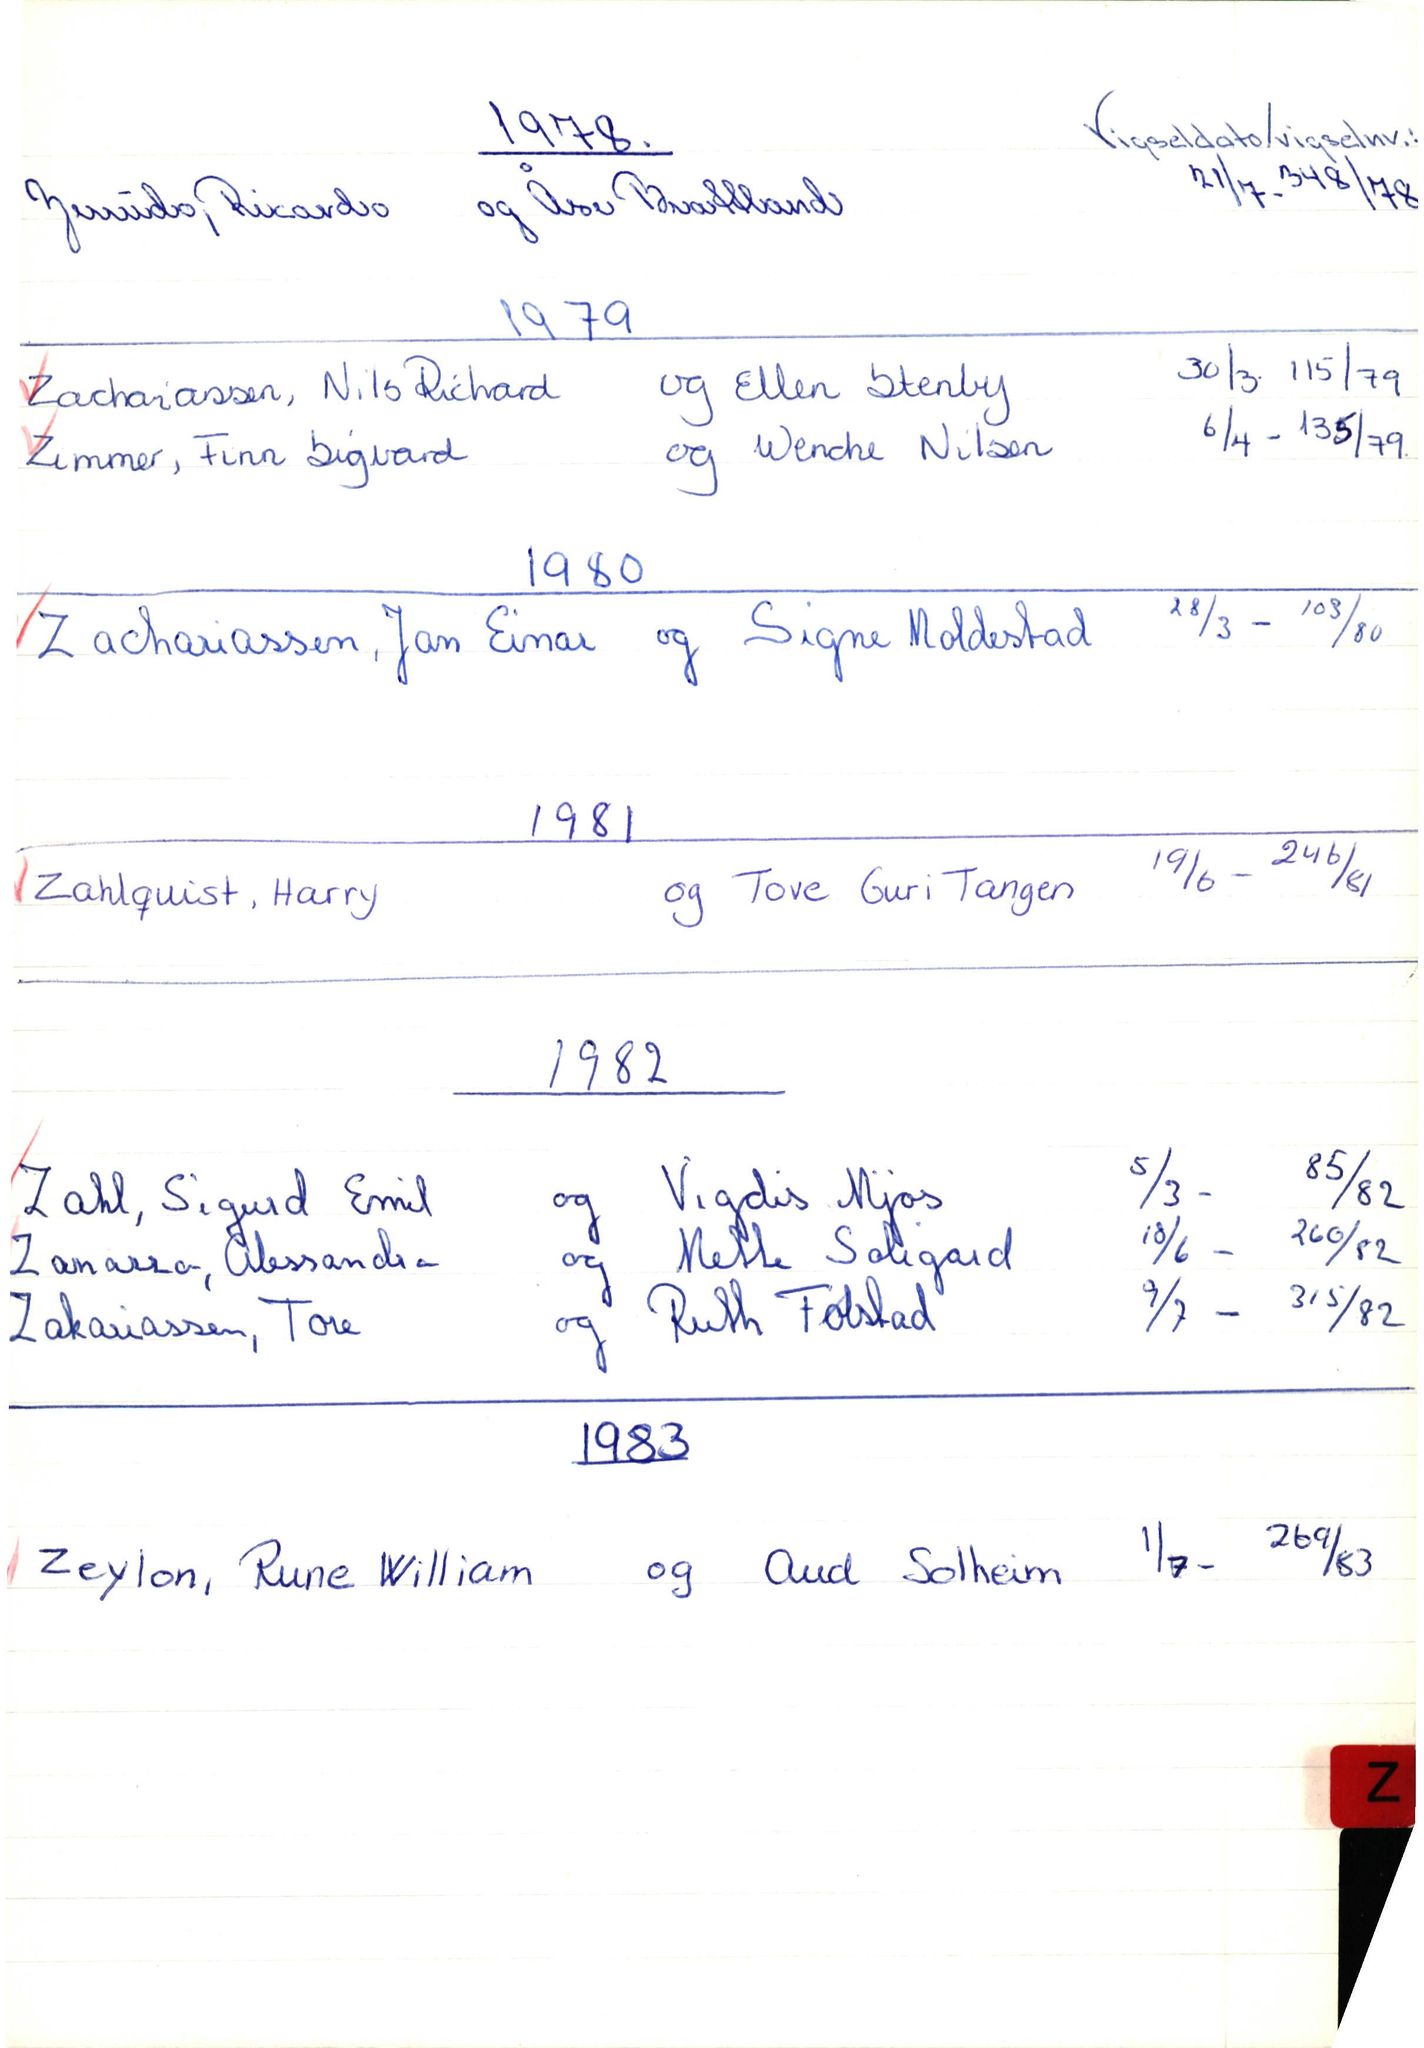 1978.
Vigseldato/vigselnr.:
Ricardo og Åse Brattland 21/7 - 348/78
1979
Zachariassen, Nils Richard og Ellen Stenby 30/3. 115/79
Zimmer, Finn Sigvard og Wenche Nilsen 6/4 - 135/79.
1980
Zachariassen, Jan Einar og Signe Moldestad 28/3 - 103/80
1981
Zahlquist, Harry og Tove Guri Tangen 19/6 - 246/81
1982
Zahl, Sigurd Emil og Vigdis Mjøs 5/3 - 85/82
og Mette Soligard 18/6 - 260/82
Zakariassen, Tore og Ruth Folstad 9/7 - 315/82
1983
Zeylon, Rune William og Aud Solheim 1/7 - 269/83
Z